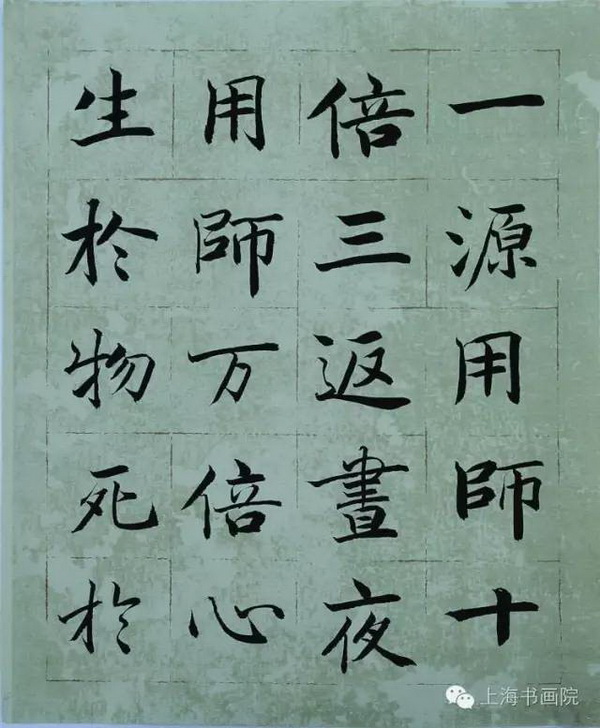 一源用師十
倍三返晝夜
用師万倍心
生於物死於
上海书画院